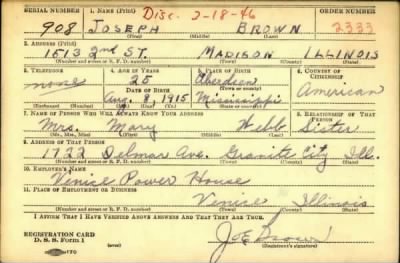 Disc. 2-18-46
SERIAL NUMBER 1. NAME (Print) ORDER NUMBER
908 JOSEPH BROWN 2333
(First) (Middle) (Last)
2. ADDRESS (Print)
1513 2nd ST. MADISON ILLINOIS
(Number and street or R. F. D. number) (Town) (County) (State)
3. TELEPHONE 4. AGE IN YEARS 5. PLACE OF BIRTH 6. COUNTRY OF CITIZENSHIP
none 25 Aberdeen American
DATE OF BIRTH (Town or county)
Aug. 1915 Mississippi
(Exchange) (Number) (Mo.) (Day) (Yr.) (State or country)
7. NAME OF PERSON WHO WILL ALWAYS KNOW YOUR ADDRESS 8. RELATIONSHIP OF THAT PERSON
Mrs. Mary Webb Sister
(Mr., Mrs., Miss) (First) (Middle) (Last)
9. ADDRESS OF THAT PERSON
1722 Delmar Ave. Granite City Ill.
(Number and street or R. F. D. number) (Town) (County) (State)
10. EMPLOYER'S NAME
Venice Power House
11. PLACE OF EMPLOYMENT OR BUSINESS
Venice Illinois
(Number and street or R. F. D. number) (Town) (County) (State)
I AFFIRM THAT I HAVE VERIFIED ABOVE ANSWERS AND THAT THEY ARE TRUE.
REGISTRATION CARD
D. S. S. Form 1
Joe Brown
(Registrant's signature)